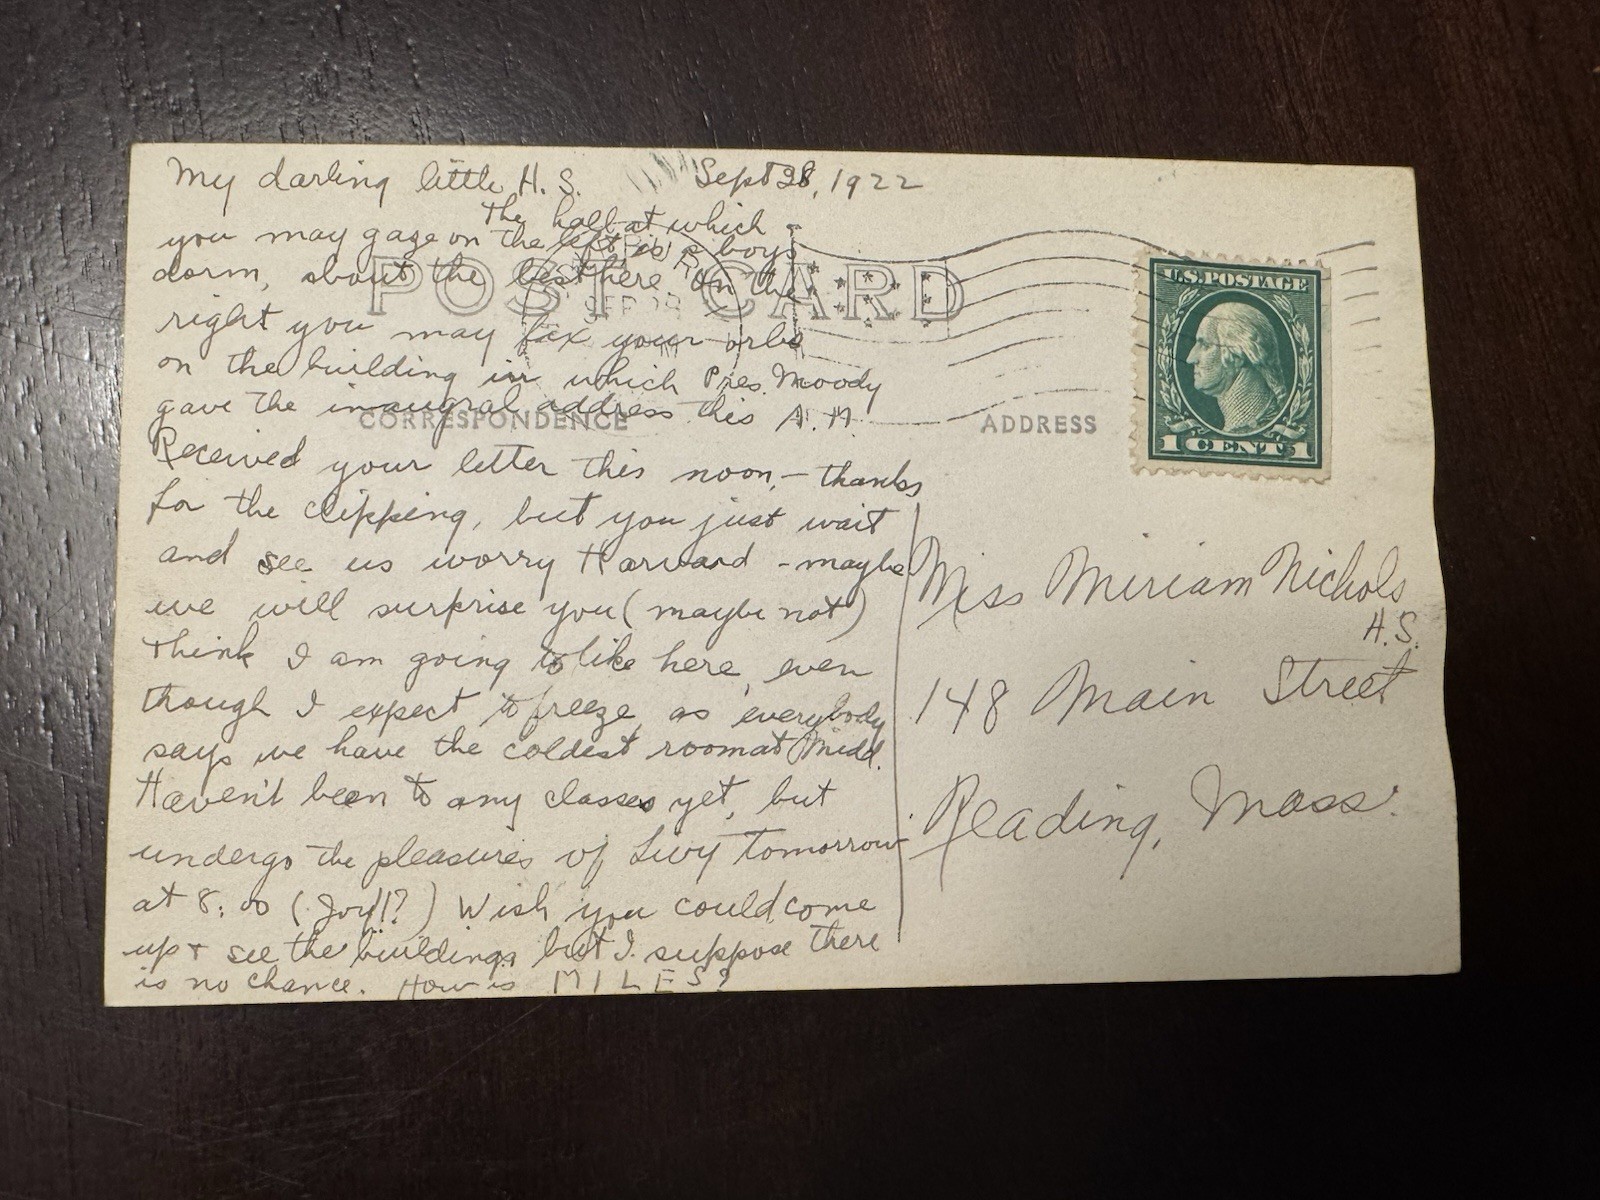 My darling little H. S. Sept 28, 1922
the hall at which
you may gaze on the left is a boys
dorm, about the best here On the
right you may fix your orbs
on the building in which Pres. Moody
gave the inaugral address this A.M.
Received your letter this noon, - thanks
for the clipping, but you just wait
and see us worry Harvard - maybe
we will surprise you (maybe not)
think I am going to like here, even
though I expect to freeze, as everybody
says we have the coldest room at Midd.
Haven't been to any classes yet, but
undergo the pleasures of Livy tomorrow
at 8:00 (Joy!!?) Wish you could come
up + see the buildings but I suppose there
is no chance. How is MILES?
POST CARD
SEP 28
CORRESPONDENCE
ADDRESS
U.S. POSTAGE
1 CENT 1
Miss Miriam Nichols
H.S.
148 Main Street
Reading, Mass.